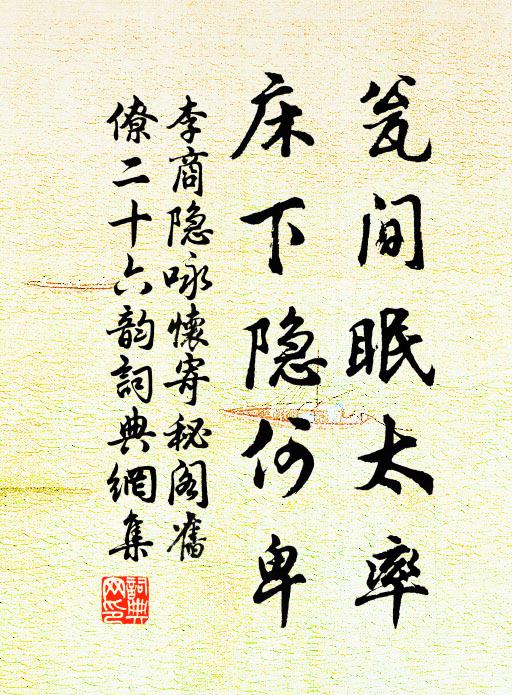 瓮间眠太率
床下隐何卑
李商隐咏懷寄秘阁舊
僚二十六韵詞典網集
詞典
网印